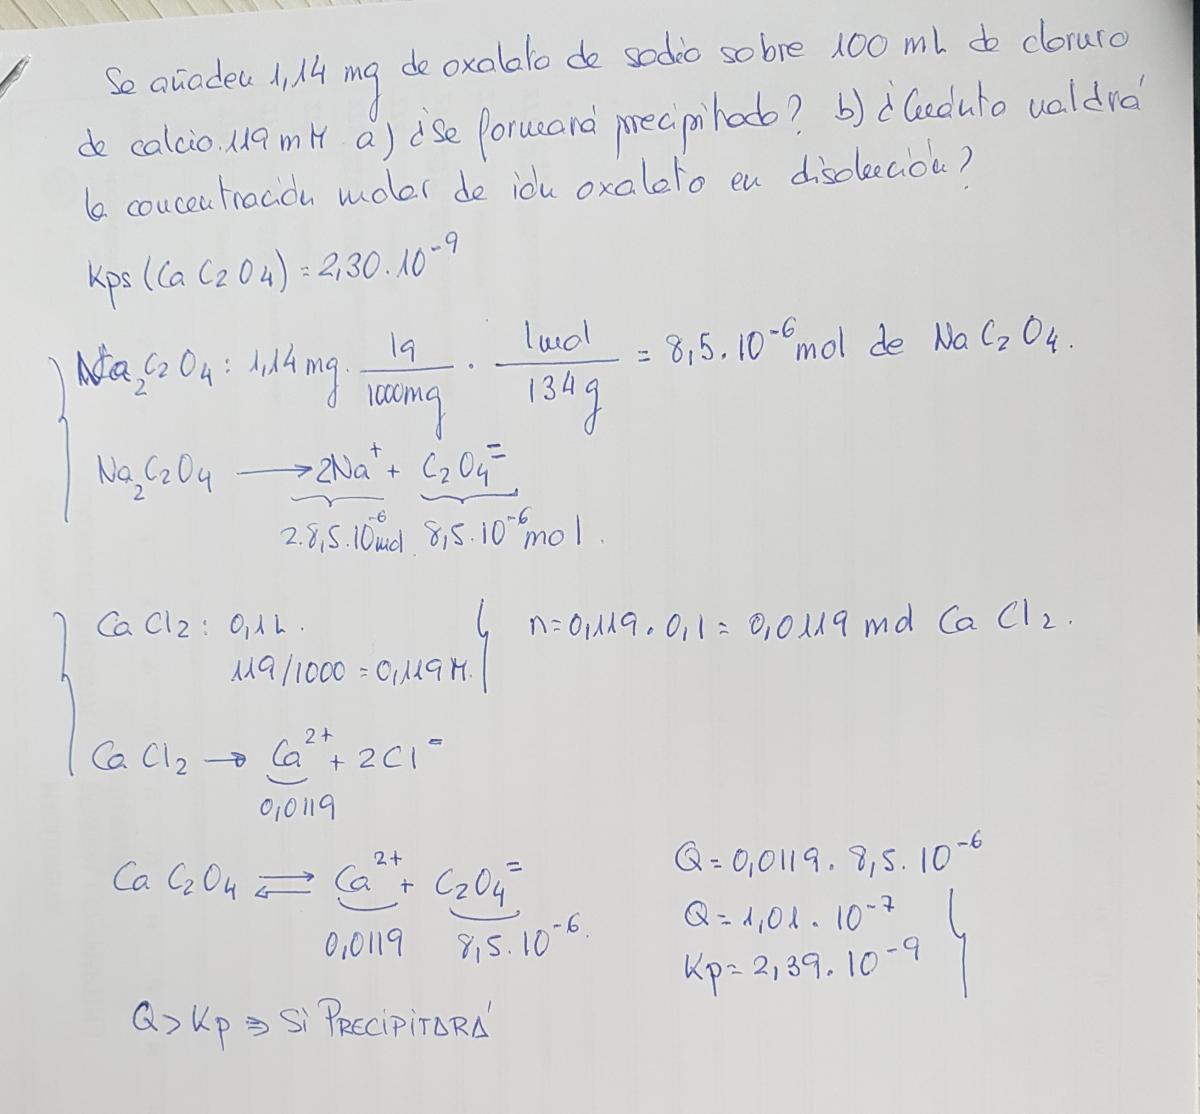 Se añaden 1,14 mg de oxalato de sodio sobre 100 mL de cloruro
de calcio. 119 mM a) ¿Se formará precipitado? b) ¿Cuánto valdrá
la concentración molar de ión oxalato en disolución?
Kps (Ca C2O4) = 2,30.10⁻⁹
Na₂C₂O₄ : 1,14 mg. 1g/1000mg . 1mol/134g = 8,5.10⁻⁶ mol de Na C₂O₄.
Na₂C₂O₄ → 2Na⁺ + C₂O₄⁼
2.8,5.10⁻⁶ mol 8,5.10⁻⁶ mol.
Ca Cl₂ : 0,1 L. n = 0,119.0,1 = 0,0119 mol Ca Cl₂.
119/1000 = 0,119 M.
Ca Cl₂ → Ca²⁺ + 2Cl⁼
0,0119
Ca C₂O₄ ⇌ Ca²⁺ + C₂O₄⁼ Q = 0,0119. 8,5.10⁻⁶
0,0119 8,5.10⁻⁶. Q = 1,01.10⁻⁷
Kp = 2,39.10⁻⁹
Q > Kp ⇒ Si PRECIPITARÁ